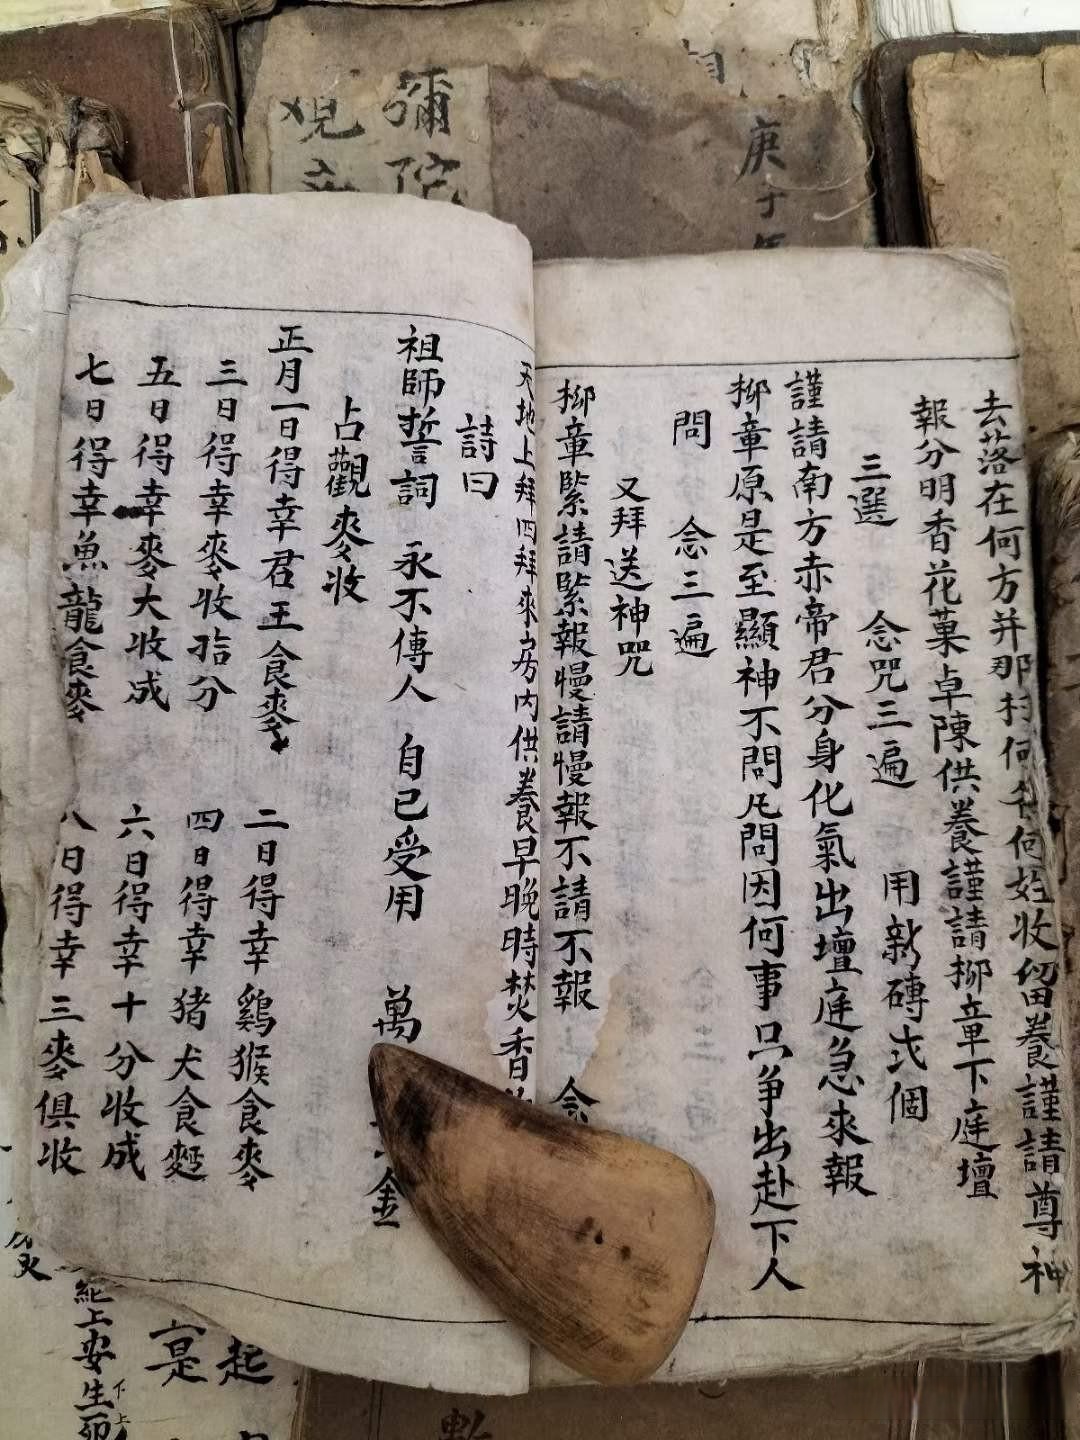 去落在何方并那村何名何姓收留養謹請尊神
報分明香花菓卓陳供養謹請柳章下庭壇
三選 念咒三遍 用新磚弍個
謹請南方赤帝君分身化氣出壇庭急來報
柳章原是至顯神不問凡問因何事只爭出赴下人
問 念三遍
又拜送神咒
柳章緊請緊報慢請慢報不請不報 念
天地上拜四拜來房內供養早晚時焚香
詩曰
祖師誓詞 永不傳人 自己受用 萬 金
占觀麥收
正月一日得幸君王食麥 二日得幸鷄猴食麥
三日得幸麥收拾分 四日得幸猪犬食麪
五日得幸麥大收成 六日得幸十分收成
七日得幸魚龍食麥 八日得幸三麥俱收
彌陀
觀
庚子年
上安生卯
起